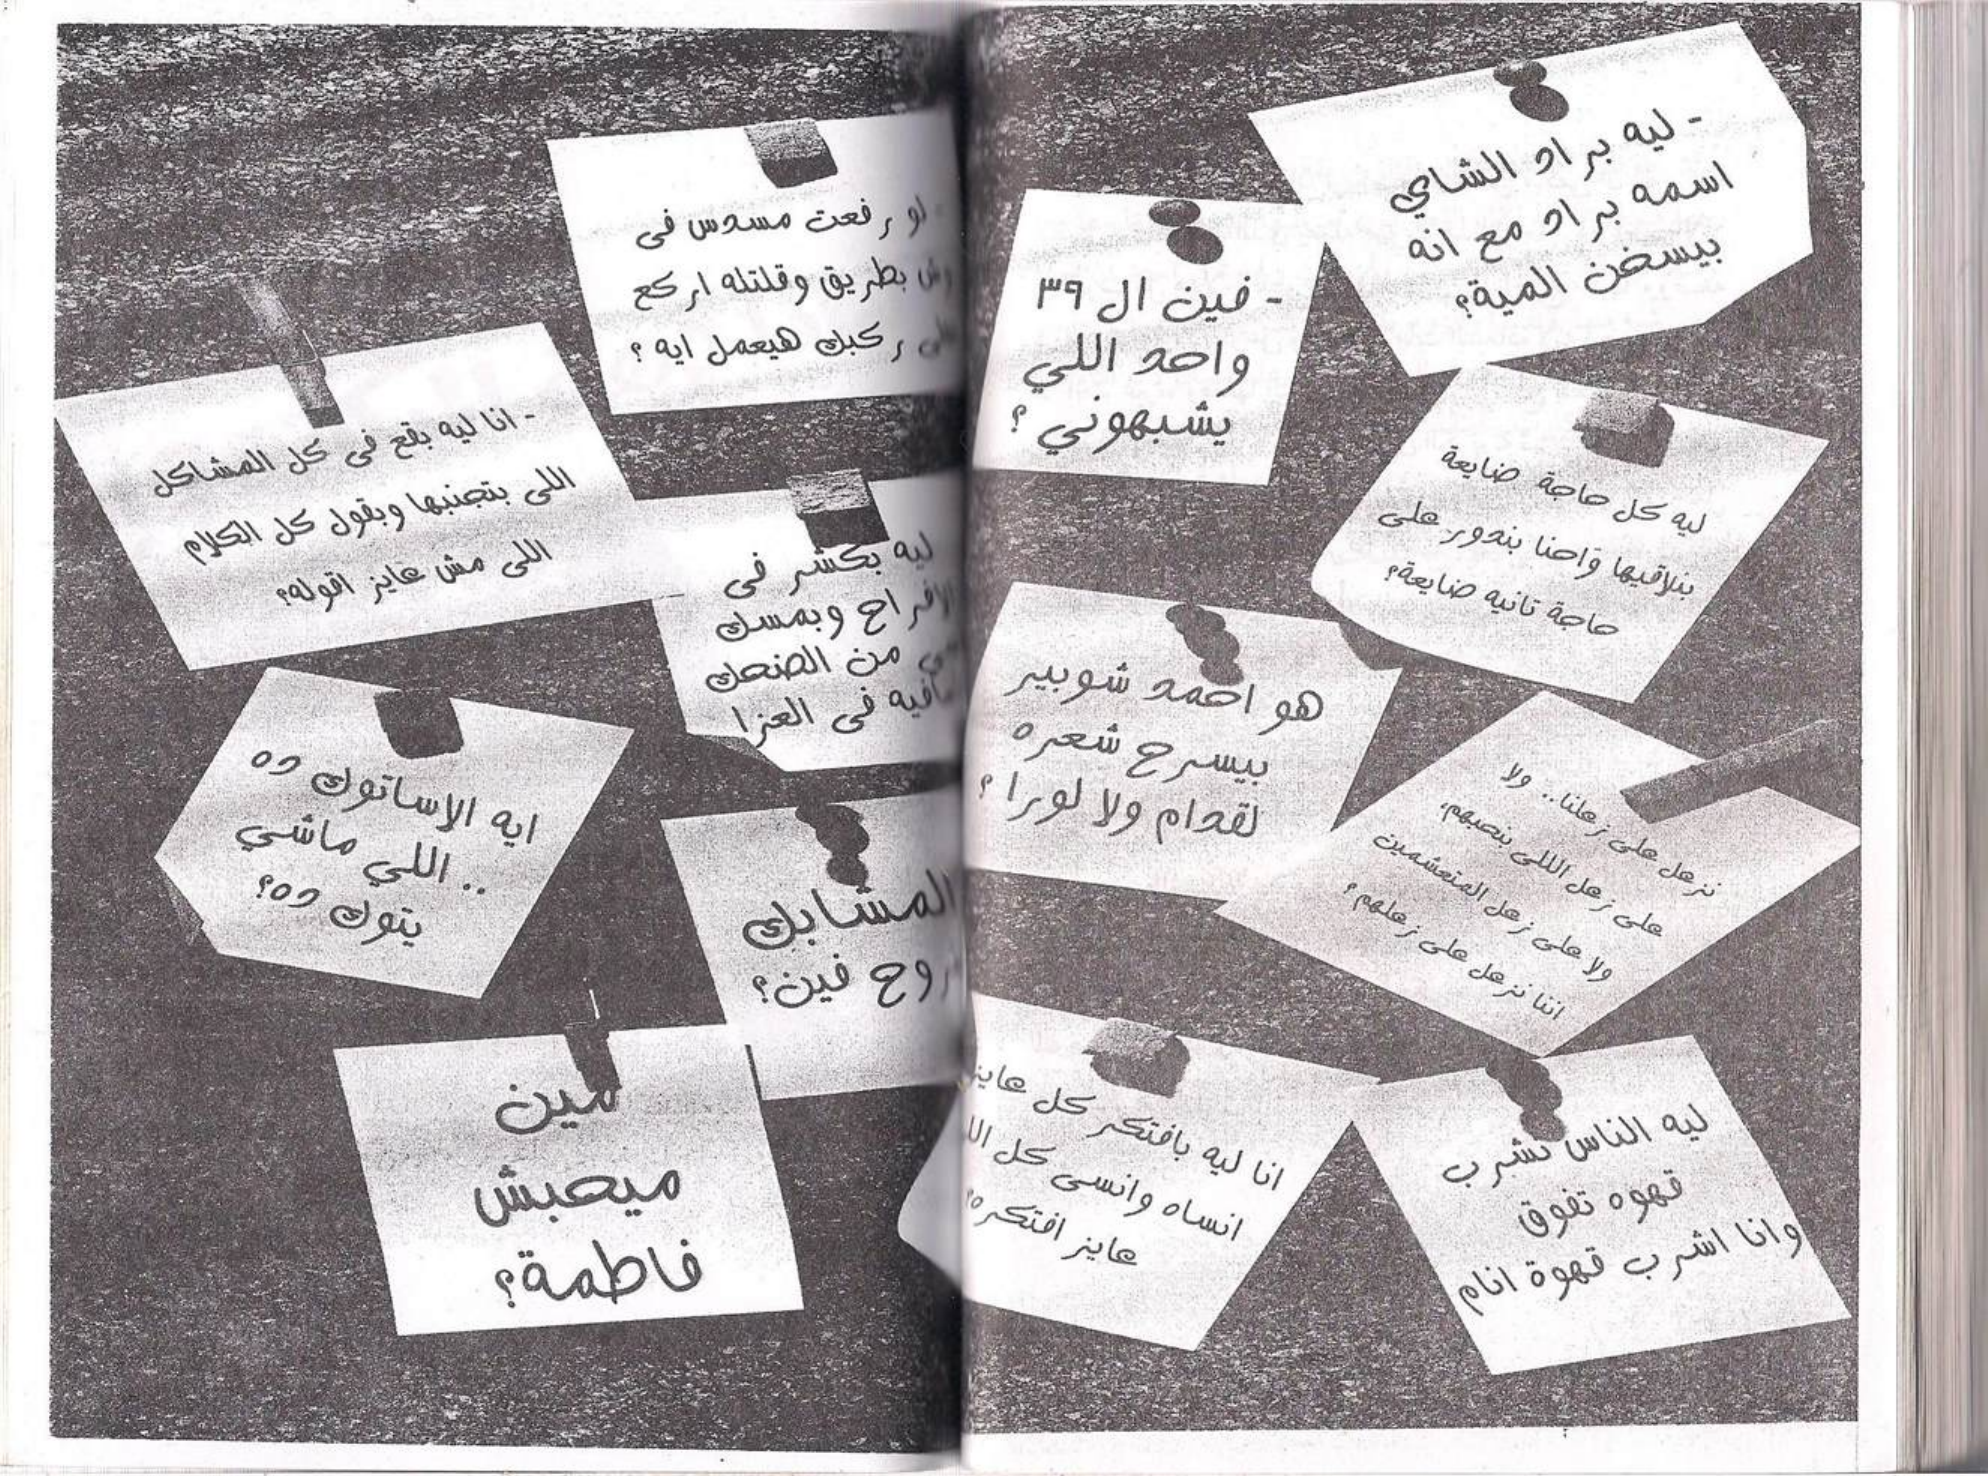 - ليه براد الشاي
اسمه براد مع انه
بيسخن المية؟
- فين ال ٣٩
واحد اللي
يشبهوني ؟
ليه كل حاجة ضايعة
بنلاقيها واحنا بندور على
حاجة تانيه ضايعة؟
هو احمد شوبير
بيسرح شعره
لقدام ولا لورا ؟
نزعل على زعلنا.. ولا
على زعل اللى بنحبهم،
ولا على زعل المتعشمين
اننا نزعل على زعلهم ؟
انا ليه بافتكر كل عايز
انساه وانسى كل
عايز افتكره؟
ليه الناس تشرب
قهوه تفوق
وانا اشرب قهوة انام
لو رفعت مسدس فى
وش بطريق وقلتله اركع
ركبك هيعمل ايه ؟
- انا ليه بقع فى كل المشاكل
اللى بتجنبها وبقول كل الكلام
اللى مش عايز اقوله؟
ليه بكشر فى
الافراح وبمسك
من الضحك
فى العزا
ايه الاساتوك ده
.. اللي ماشي
يتوك ده؟
المشابك
روح فين؟
مين
ميحبش
فاطمة؟